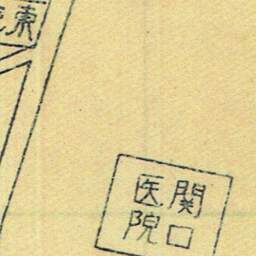 東
関口
医院